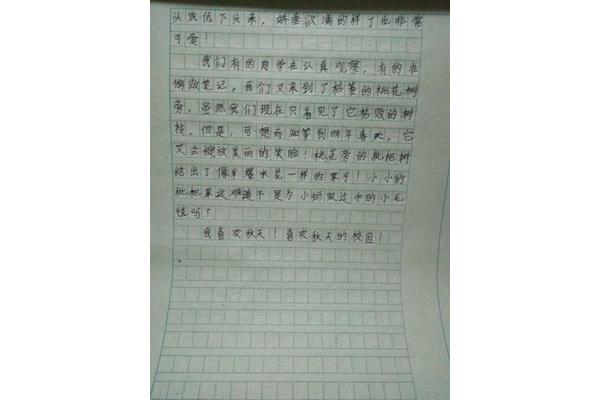 头族低下头来，娇垂欲滴的样子也非常
可爱！
我们有的同学在认真观察，有的在
做笔记。我们又来到了枯萎的桃花树
旁，虽然我们现在只看见了它枯败的树
枝，但是，可想而知等到明年春天，它
又会绽放美丽的笑脸！桃花旁的枇杷树
结出了像爆米花一样的果子！小小的
枇杷果这难道不是为小蚂蚁过冬的小毛
毯吗？
我喜欢秋天！喜欢秋天的校园！